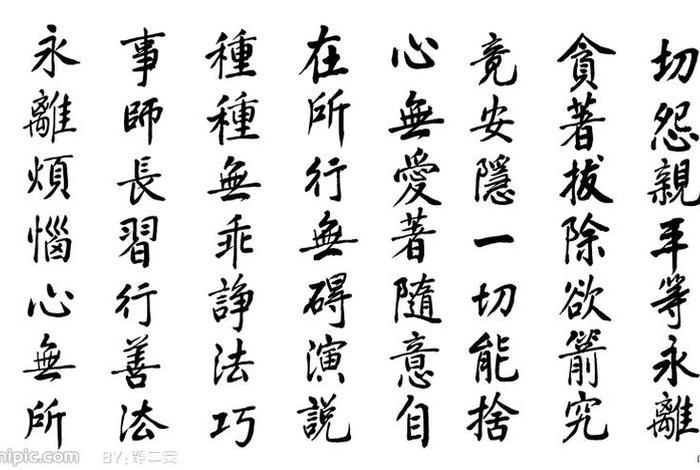 切怨親平等永離
貪著拔除欲箭究
竟安隱一切能捨
心無愛著隨意自
在所行無碍演説
種種無乖諍法巧
事師長習行善法
永離煩惱心無所
nipic.com
BY:野二安